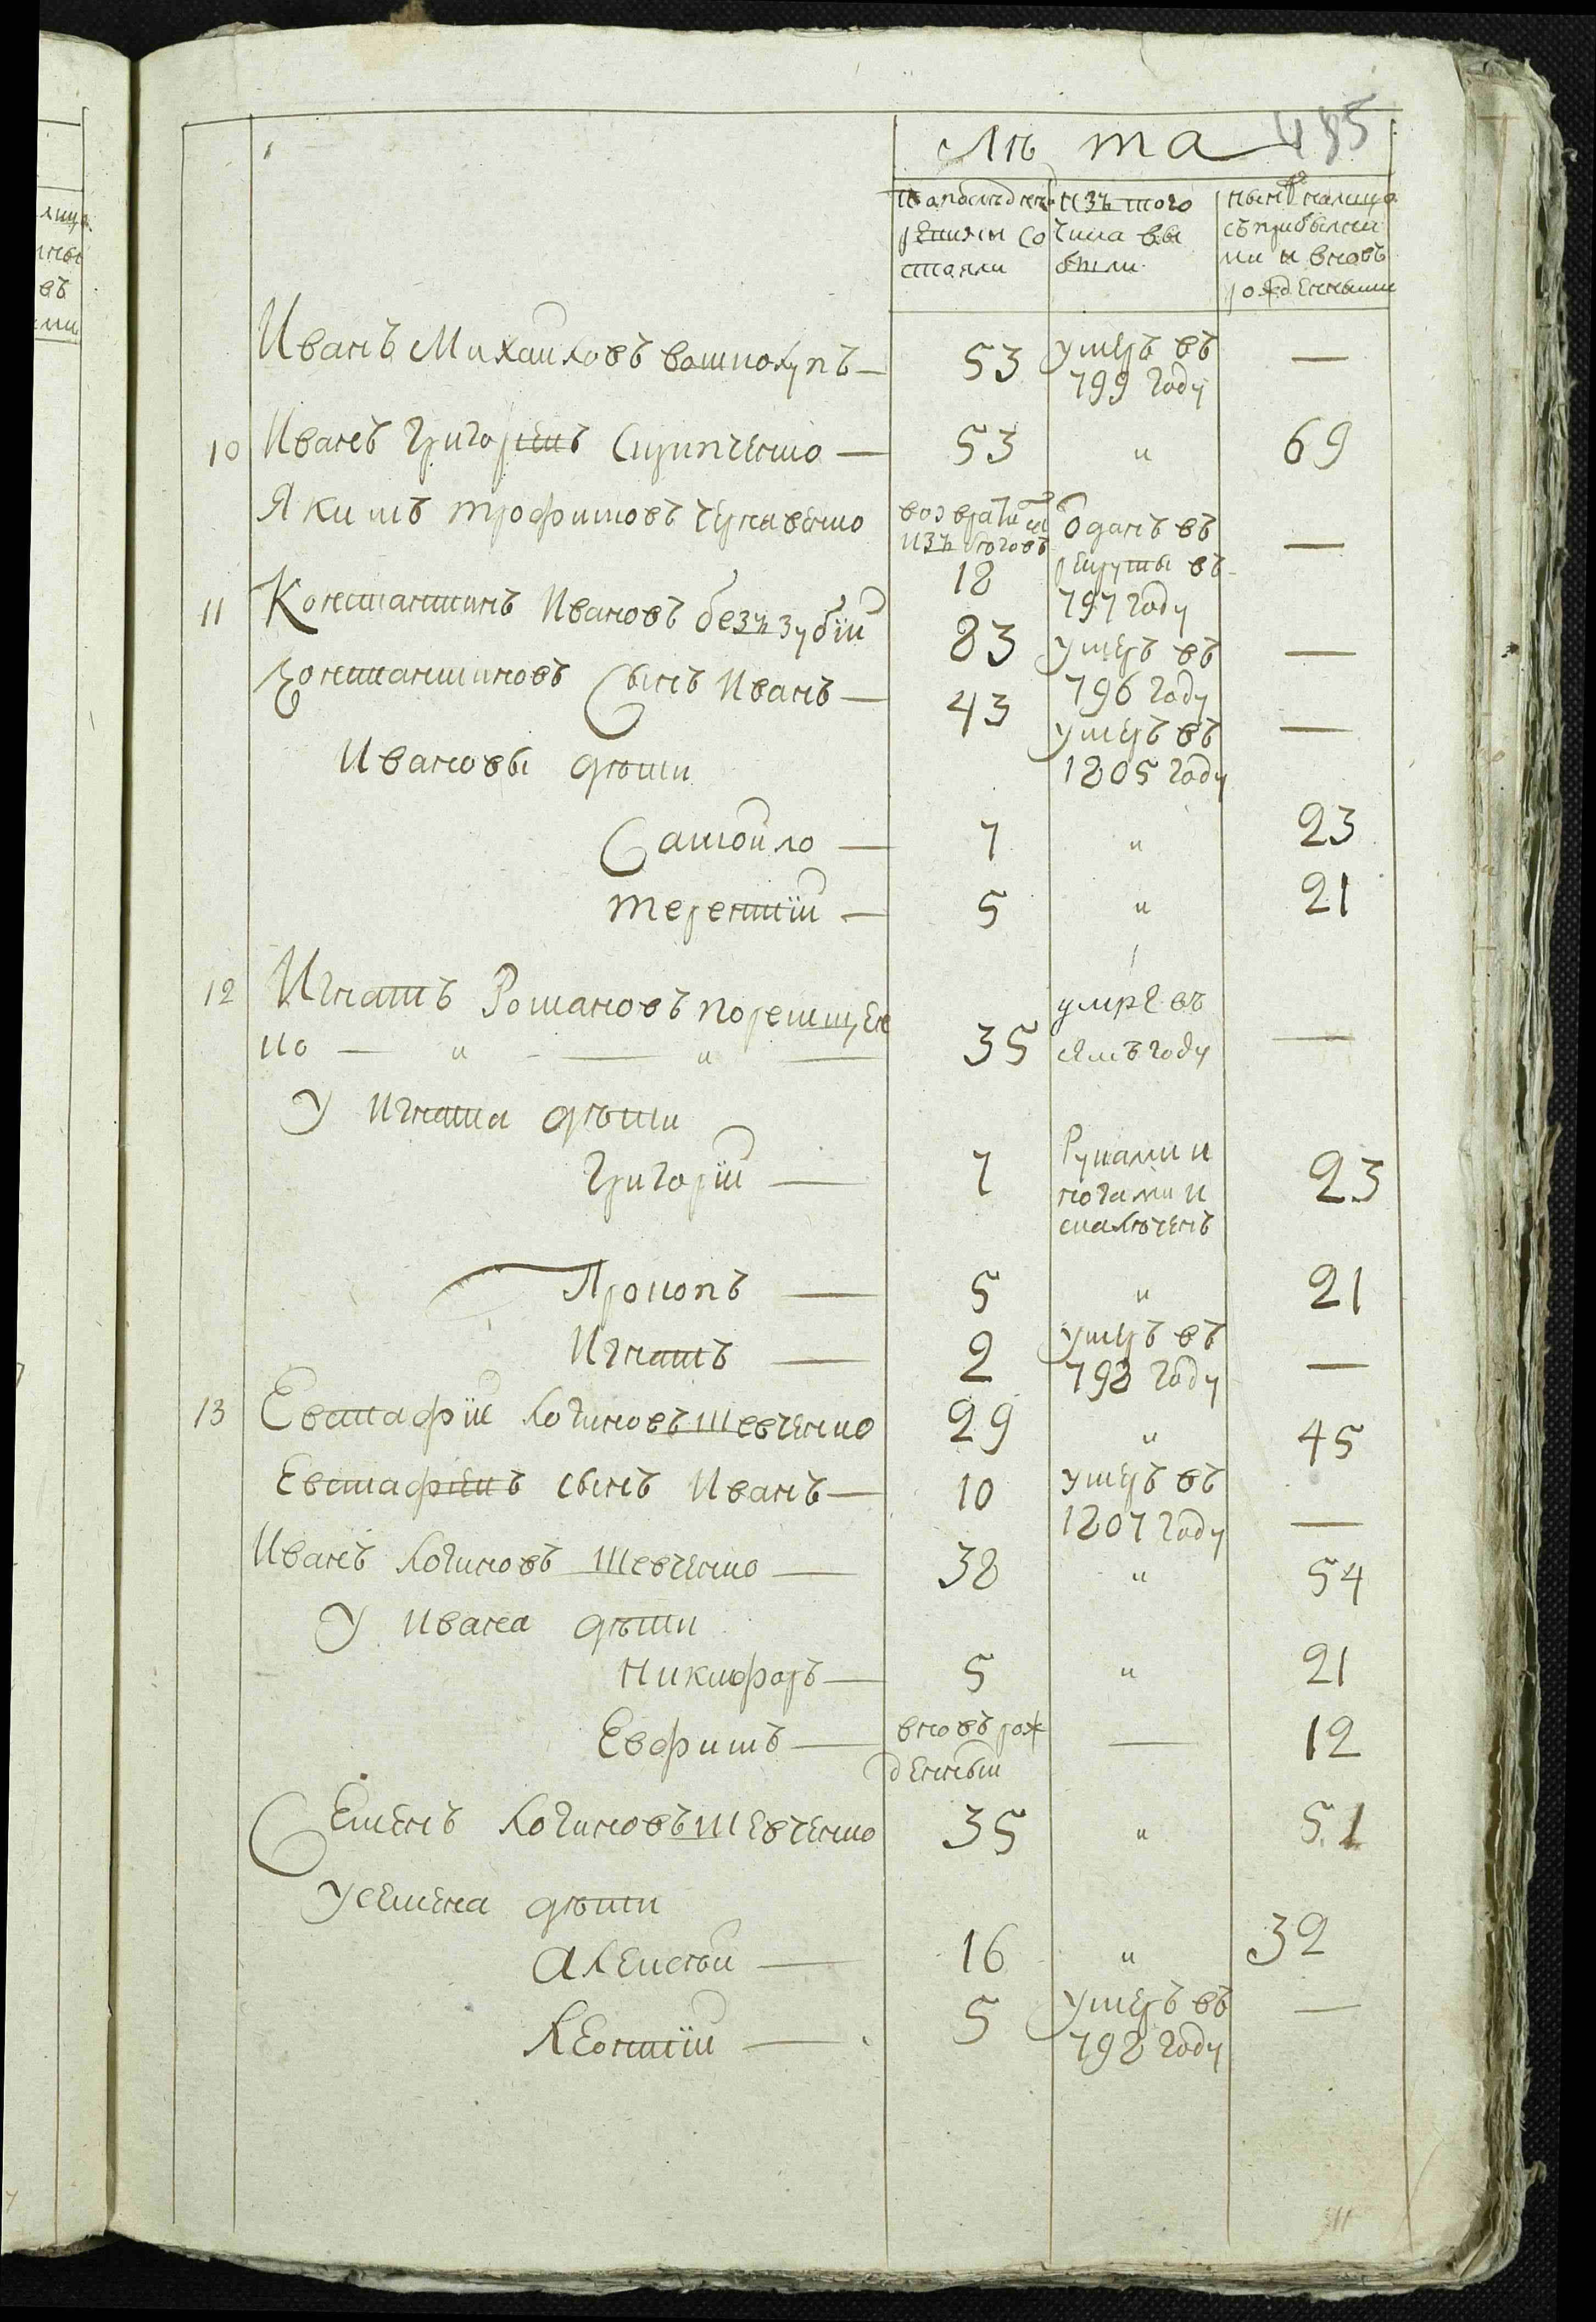 485
Лѣ та
По последней ревизии состояли
изъ того числа выбыли
ныне налицо съ прибылыми и вновь рожденными
Иванъ Михайловъ 53 умеръ въ 799 году —
10 Иванъ Григорьевъ 53 " 69
Якимъ Трофимовъ возвратился изъ беговъ 18 отданъ въ рекруты въ 797 году —
11 Константинъ Ивановъ безъзубій 83 умеръ въ 796 году —
Константиновъ Сынъ Иванъ — 43 умеръ въ 1805 году —
Ивановы дѣти
Самойло — 7 " 23
Терентій — 5 " 21
12 Игнатъ Романовъ
ко — " — " — 35 умре въ семъ году —
У Игната дѣти
Григорій — 7 Руками и ногами искалѣченъ 23
Прокопъ — 5 " 21
Игнатъ — 2 умеръ въ 798 году —
13 Евстафій Логиновъ Шевченко 29 " 45
Евстафіевъ сынъ Иванъ — 10 умеръ въ 1807 году —
Иванъ Логиновъ Шевченко — 38 " 54
У Ивана дѣти
Никифоръ — 5 " 21
Евфимъ — вновь рожденный — 12
Семенъ Логиновъ Шевченко 35 " 51
У Семена дѣти
Алексѣй — 16 " 32
Леонтій — 5 умеръ въ 798 году —